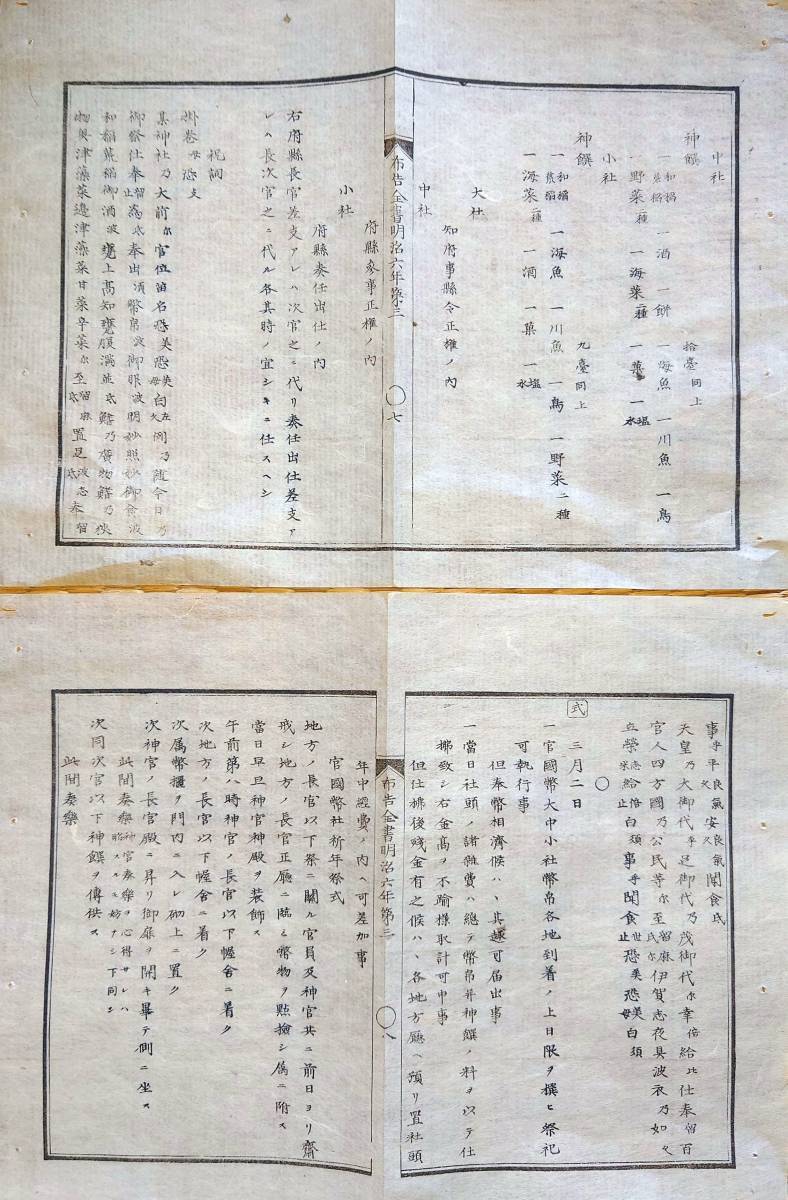 中社
神饌　拾臺同上
一和稲荒稲　一酒　一餅　一海魚　一川魚　一鳥
一野菜二種　一海菜二種　一菓　一塩水
小社
神饌　九臺同上
一和稲荒稲　一海魚　一川魚　一鳥　一野菜二種
一海菜二種　一酒　一菓　一塩水
大社
知府事縣令正權ノ内
中社
布告全書明治六年第三　〇七
府縣參事正權ノ内
小社
府縣奏任出仕ノ内
右府縣長官差支アレハ次官之ニ代リ奏任出仕差支ア
レハ長次官之ニ代ル各其時ノ宜シキニ仕スヘシ
祝詞
掛卷母恐支
某神社乃大前尓官位苗名恐美恐美母白久例乃隨今日乃
御祭仕奉留止爲氐奉出須幣帛波御服波明妙照妙御食波
和稲荒稲御酒波甕上高知甕腹満並氐鰭乃廣物鰭乃狹
物奥津藻菜邊津藻菜甘菜辛菜尓至留麻氐置足波志氐奉留
事乎平久良氣安久良氣聞食氐
天皇乃大御代乎足御代乃茂御代尓幸倍給比仕奉留百
官人四方國乃公民等尓至留麻氐尓伊賀志夜具波衣乃如久
立榮志米給倍止白須事乎聞食世止恐美恐美母白須
〇
式
三月二日
一官國幣大中小社幣帛各地到着ノ上日限ヲ撰ヒ祭祀
可執行事
但奉幣相濟候ハヽ其趣可届出事
一當日社頭ノ諸雜費ハ總テ幣帛并神饌ノ料ヲ以テ仕
拂致シ右金高ヲ不踰様取計可申事
但仕拂後殘金有之候ハヽ各地方廳ヘ預リ置社頭
布告全書明治六年第三　〇八
年中經費ノ内ヘ可差加事
官國幣社祈年祭式
地方ノ長官以下祭ニ關ル官員及神官共ニ前日ヨリ齋
戒シ地方ノ長官正廳ニ臨ミ幣物ヲ點撿シ属ニ附ス
當日早旦神官神殿ヲ装飾ス
午前第八時神官ノ長官以下幄舎ニ着ク
次地方ノ長官以下幄舎ニ着ク
次属幣櫃ヲ門内ニ入レ砌上ニ置ク
次神官ノ長官殿ニ昇リ御扉ヲ開キ畢テ側ニ坐ス
此間奏樂神官奏樂ヲ心得サレハ
下同シ
次同次官以下神饌ヲ傳供ス
此間奏樂